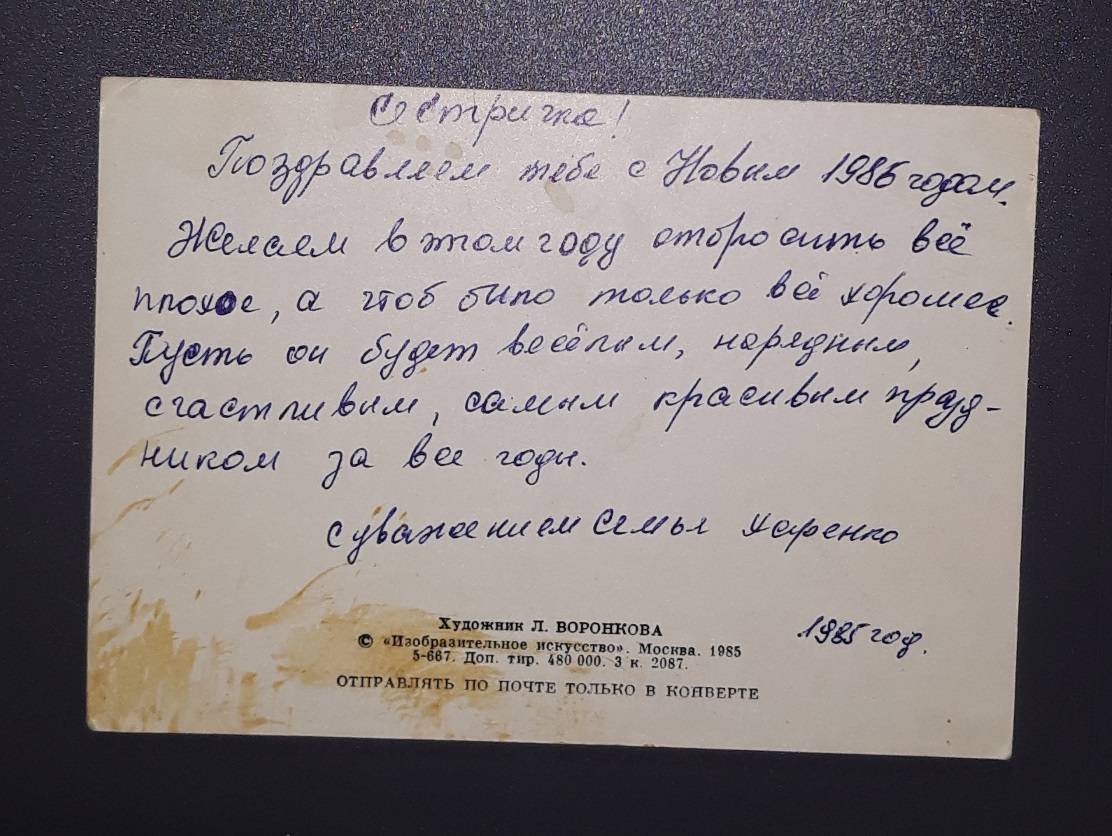 Сестричка!
Поздравляем тебе с Новым 1986 годом.
Желаем в этом году отбросить всё
плохое, а чтоб было только всё хорошее.
Пусть он будет весёлым, нарядным,
счастливым, самым красивым празд-
ником за все годы.
с уважением семья Харенко
1985 год.
Художник Л. ВОРОНКОВА
© «Изобразительное искусство». Москва. 1985
5-667. Доп. тир. 480 000. З к. 2087.
ОТПРАВЛЯТЬ ПО ПОЧТЕ ТОЛЬКО В КОНВЕРТЕ